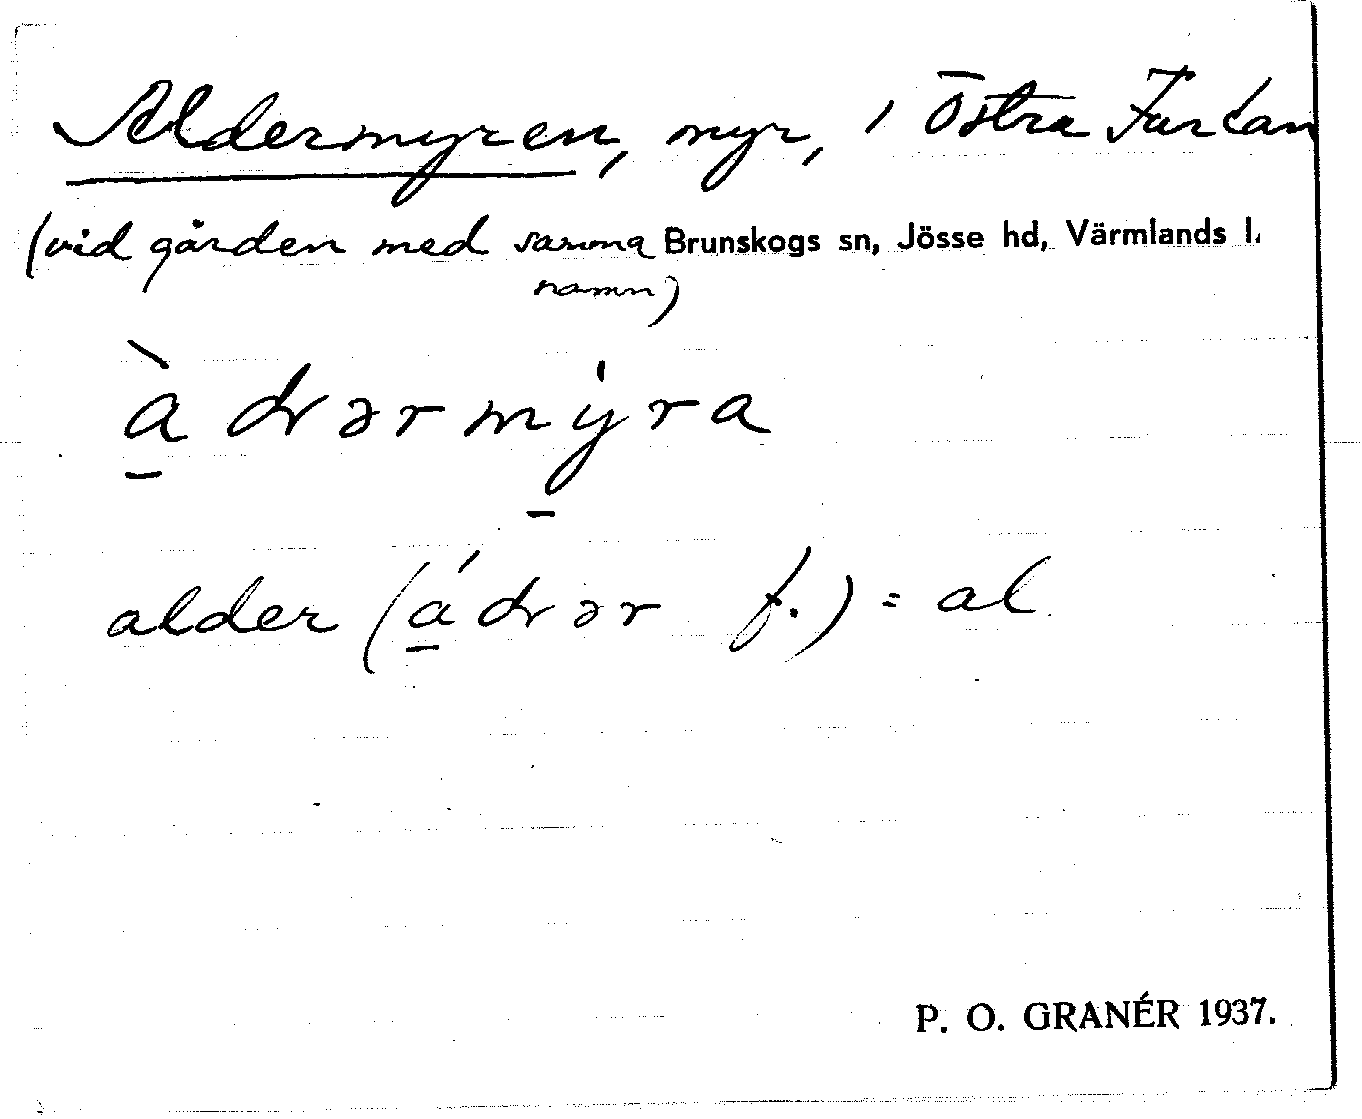 Aldermyren, myr, i Östra Furtan
(vid gården med samma Brunskogs sn, Jösse hd, Värmlands l.
namn)
à̱ drərmy̱̍ra
alder (á̱drər f.) = al
P. O. GRANÉR 1937.